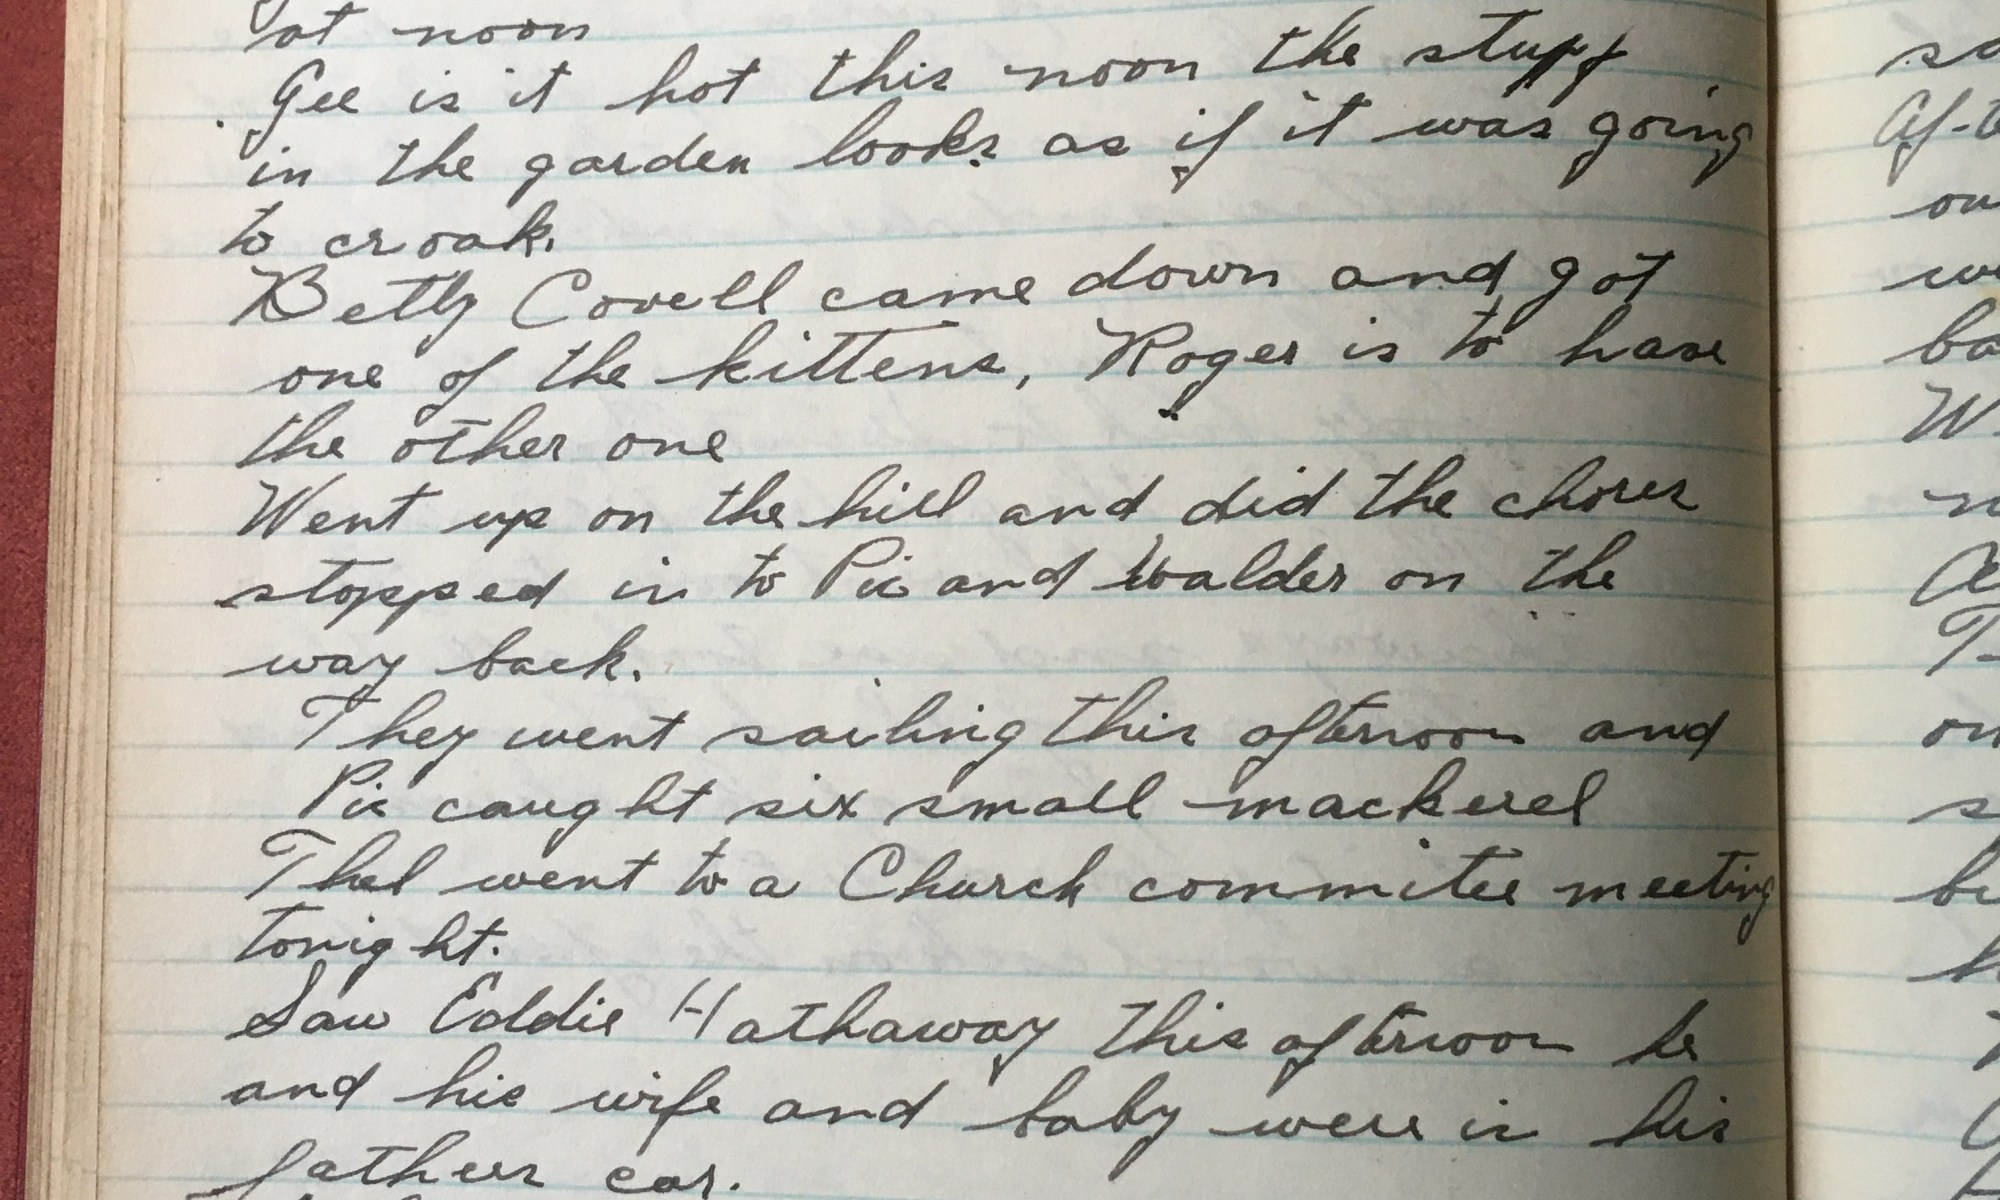 at noon
Gee is it hot this noon the stuff
in the garden looks as if it was going
to croak.
Betty Covell came down and got
one of the kittens, Roger is to have
the other one
Went up on the hill and did the chores
stopped in to Pic and Walder on the
way back.
They went sailing this afternoon and
Pic caught six small mackerel
Thel went to a Church commitee meeting
tonight.
Saw Eddie Hathaway this afternoon he
and his wife and baby were in his
fathers car.